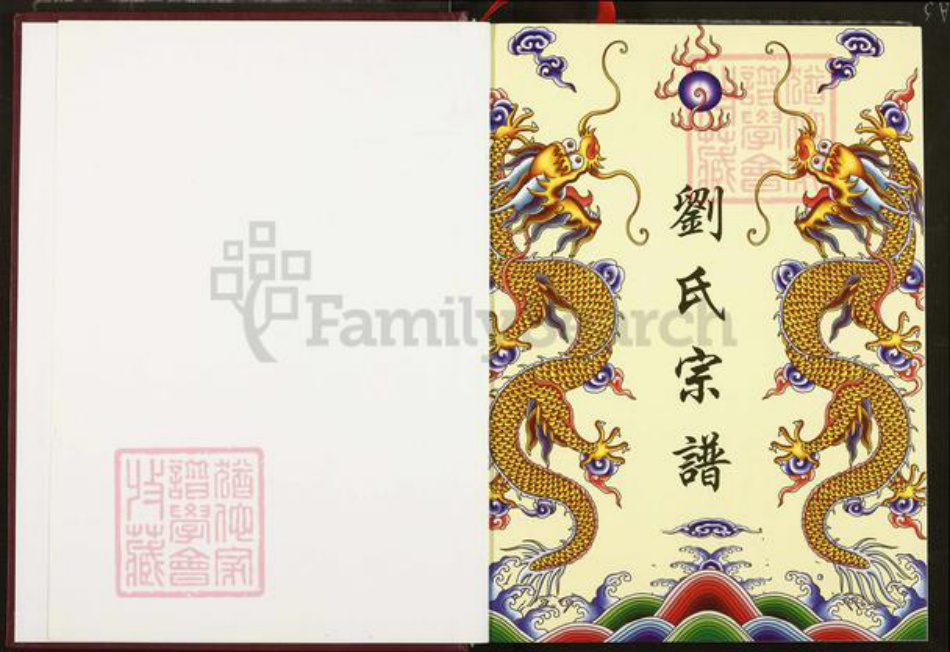 劉氏宗譜
猶他家
譜學會
收藏
FamilySearch
猶他家
譜學會
收藏